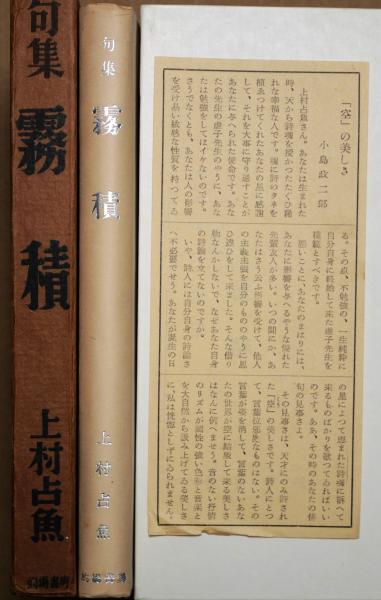 句集
霧積
上村占魚
句集
霧積
上村占魚
「空」の美しさ
小島政二郎
上村占魚さん。あなたは生まれた
時、天から詩魂を授かつたたぐひ稀
れな幸福な人です。魂に詩のタネを
植ゑつけてくれたあなたの星に感謝
して、それを大事に守り通すことが
あなたに与へられた使命です。あな
たの先生の虚子先生のやうに、あな
たは勉強をしてはイケないのです。
さうでなくとも、あなたは人の影響
を受け易い敏感な性質を持つてゐ
る。その点、不勉強の、一生純粋に
自分自身に終始して来た虚子先生を
模範とすべきです。
悪いことに、あなたのまはりには、
あなたに影響を与へるやうな優れた
先輩友人が多い。いつの間にか、あ
なたはさう云ふ影響を受けて、他人
の主義主張を自分のもののやうに思
ひ違ひをして来ました。そんな借り
物なんかしないで、なぜあなた自身
の詩論を立てないのですか。
いや、詩人には自分自身の詩論さ
へ不必要でせう。あなたが誕生の日
の星によつて恵まれた詩魂に訴へて
来るものばかりを歌つてゐればいい
のです。ああ、その時のあなたの俳
句の見事さよ。
その見事さは、天才にのみ許され
た「空」の美しさです。詩人にとつ
て、言葉位邪魔なものはない。その
言葉が姿を消して、言葉のないあな
たの世界が空に結晶して来る美しさ
はなんに例へませう。音のない抒情
のリズムが個性の強い色彩と音楽と
を大自然から汲み上げてゐる美しさ
に、私は恍惚としずにゐられません。